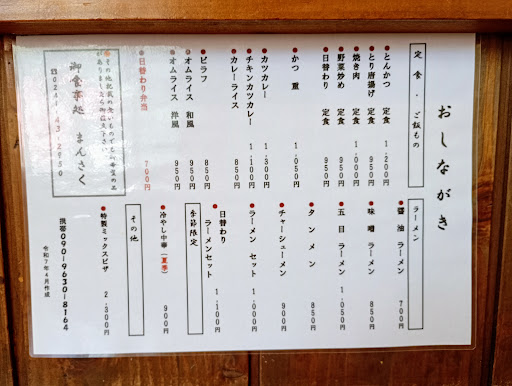 おしながき
定食・ご飯もの
●とんかつ 定食 1.200円
●とり唐揚げ 定食 950円
●焼き肉 定食 1.050円
●野菜炒め 定食 950円
●日替わり 定食 950円
●かつ 重 1.050円
●カツカレー 1.300円
●チキンカツカレー 1.100円
●カレーライス 850円
●ピラフ 850円
●オムライス 和風 950円
●オムライス 洋風 950円
●日替わり弁当 700円
ラーメン
●醤油 ラーメン 700円
●味噌 ラーメン 850円
●五目 ラーメン 1.050円
●タンメン 850円
●チャーシューメン 900円
●ラーメン セット 1.000円
●日替わり
ラーメンセット 1.100円
季節限定
●冷やし中華(夏季) 900円
その他
●特製ミックスピザ 2.300円
●その他記載の無いものでも
がありましたら御相談下さい
御食事処 まんさく
☎0241-43-2950
携帯090-9630-8164
令和7年4月作成